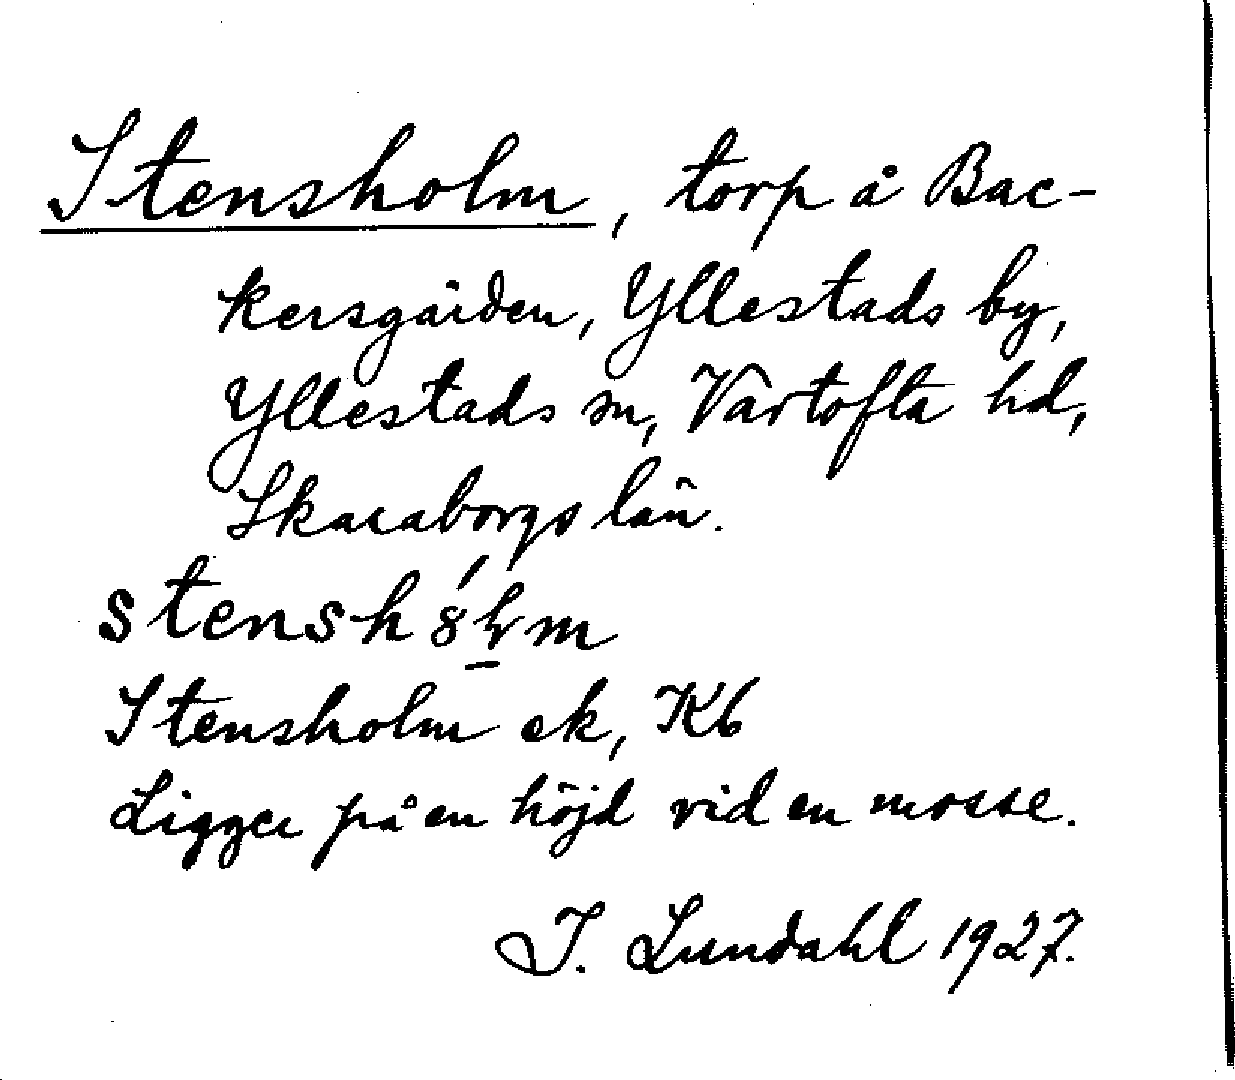 Stensholm, torp å Bac-
kersgården, Yllestads by,
Yllestads sn, Vartofta hd,
Skaraborgs län.
Stensholm ek, K6
Ligger på en höjd vid en mosse.
I. Lundahl 1927.